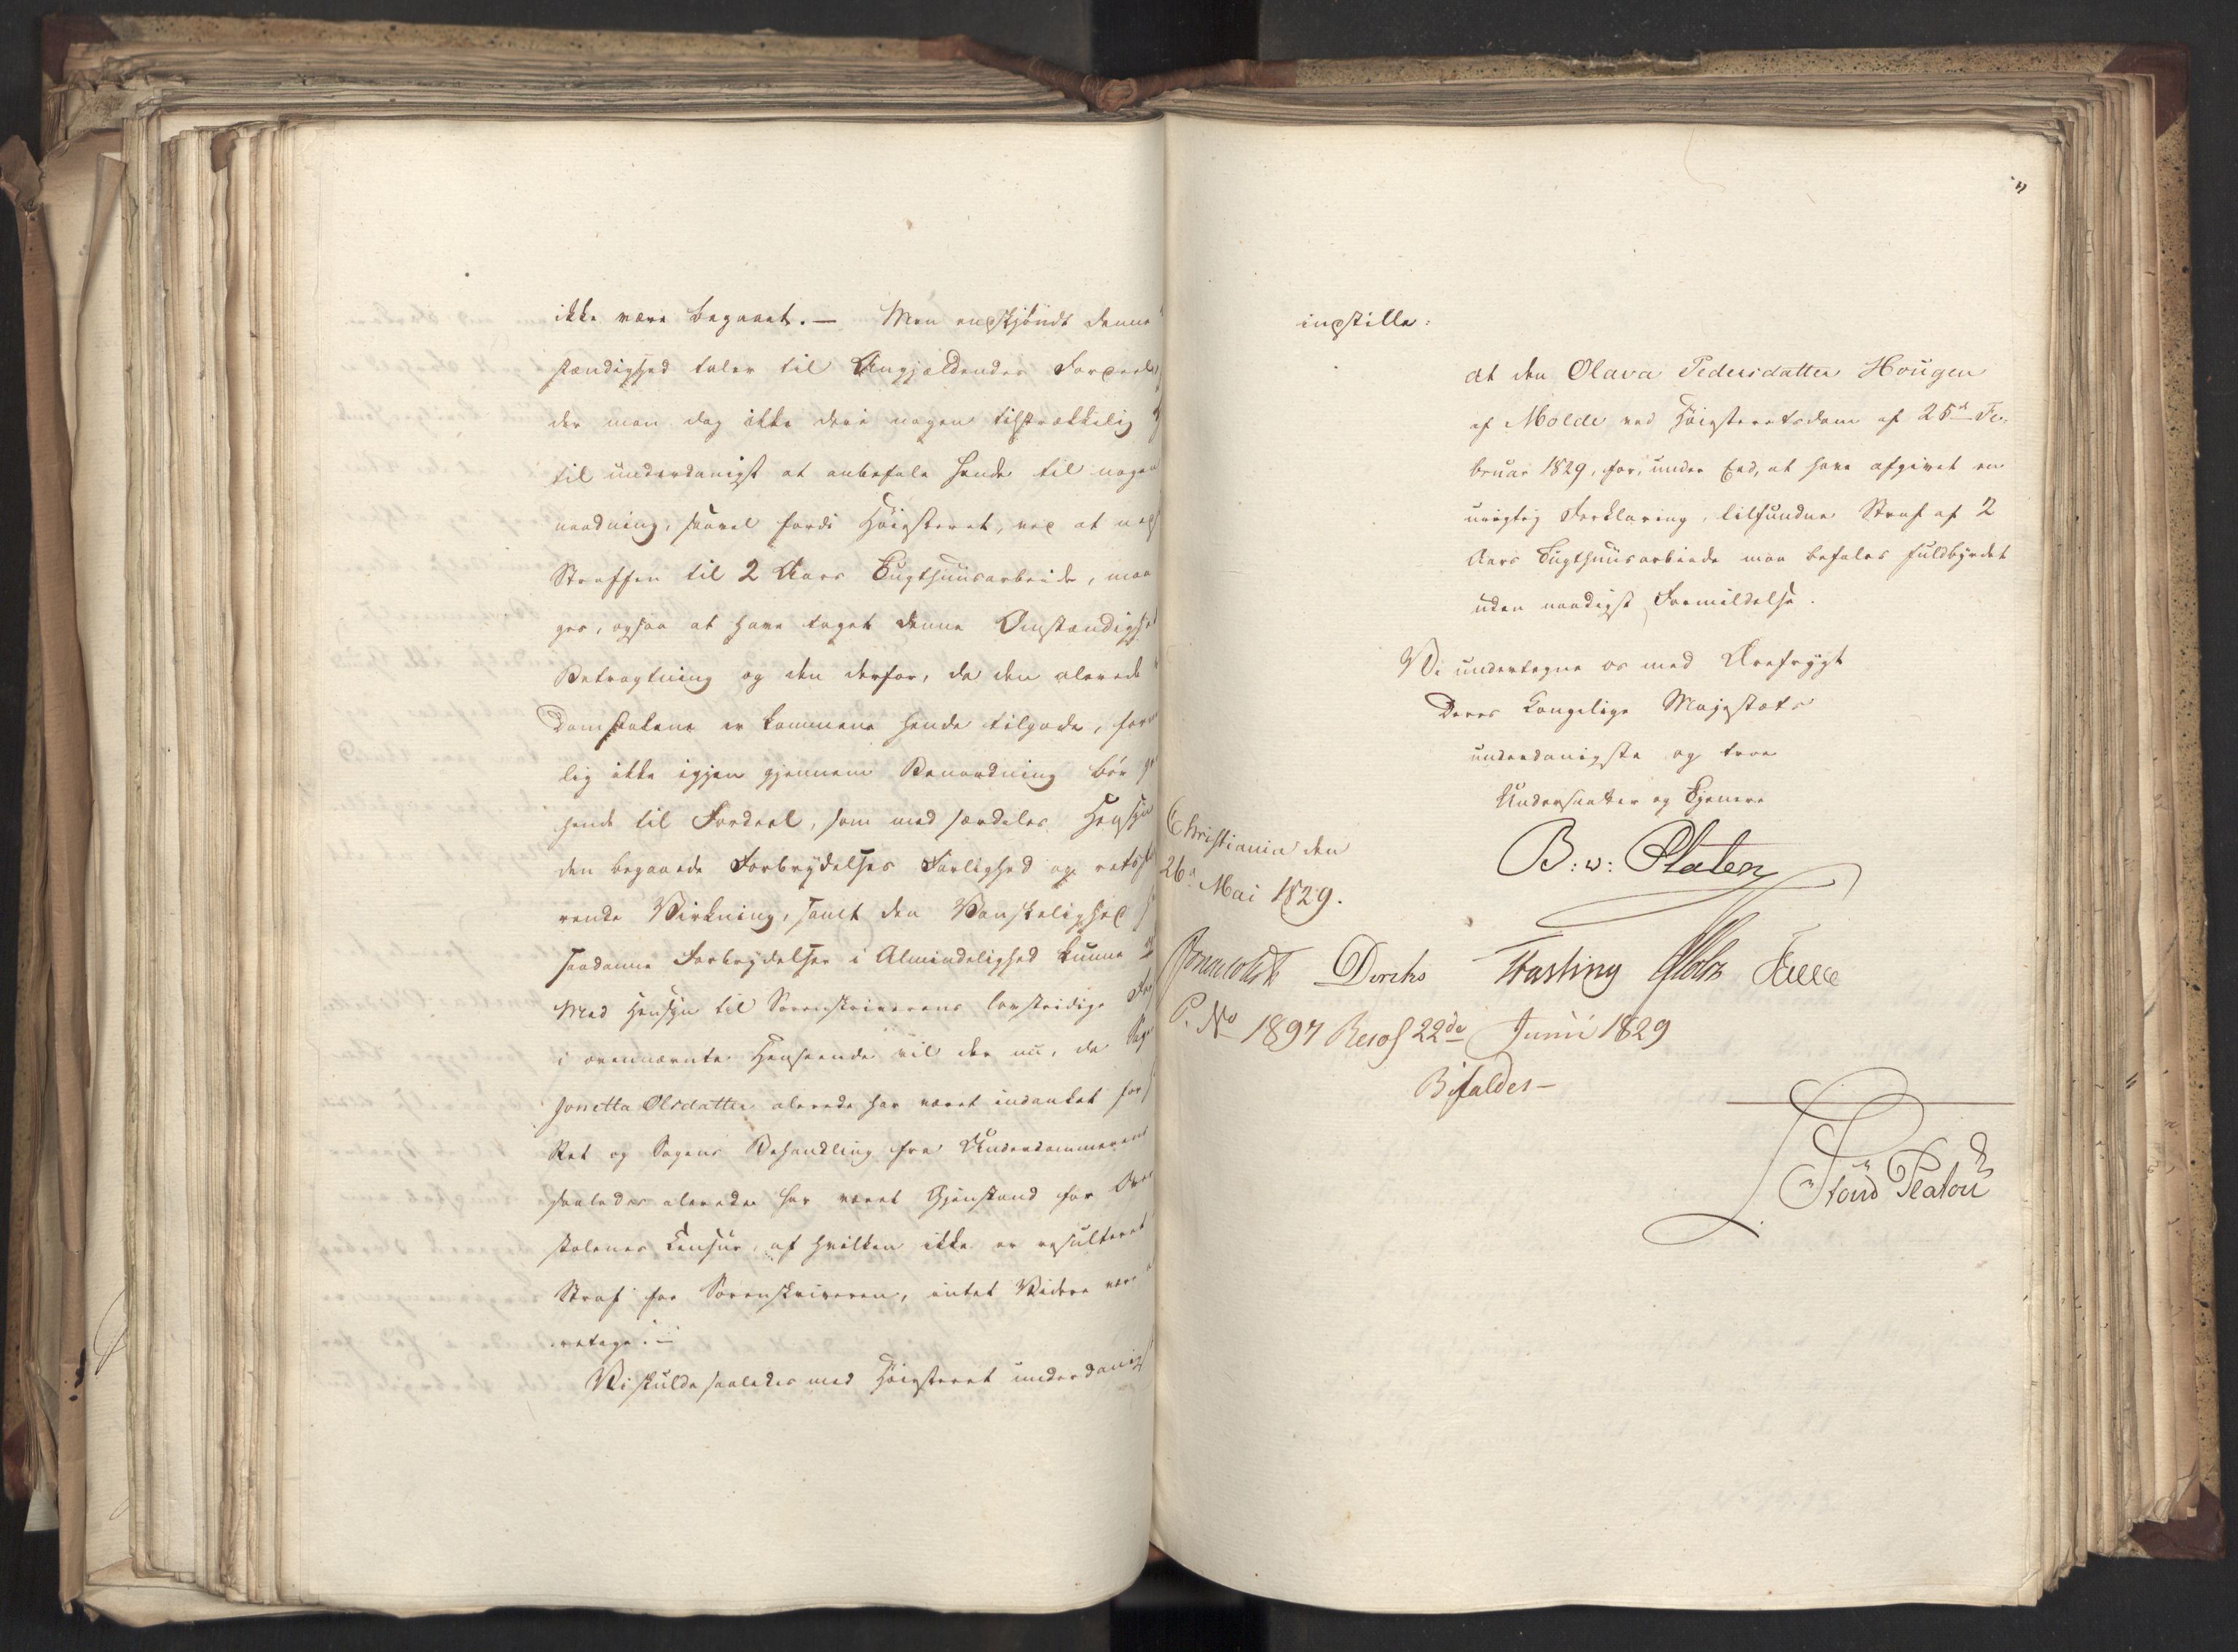 ikke være begaaet. — Men endskjöndt denne
stændighed taler til Angjældendes Fordeel,
der man dog ikke deri nogen tilstrækkelig
til underdanigst at anbefale hende til nogen
naadning, saavel fordi Höiesteret, ved at
Straffen til 2 Aars Tugthuusarbeide, maa
ges, ogsaa at have taget denne Omstændighed
Betragtning og den derfor, da den alerede
Domstolene er kommen hende tilgode,
lig ikke igjen gjennem Benaadning bör
hende til Fordeel, som med særdeles Hensyn
den begaaede Forbrydelses Farlighed og
rende Virkning, samt den Vanskelighed
saadanne Forbrydelser i Almindelighed kunne
Med Hensyn til Sorenskriverens lovstridige
i ovennævnte Henseende vil der nu, da
Jonetta Olsdatter alerede har været indanket for
Ret og Sagens Behandling fra Underdommerens
saaledes alerede har været Gjenstand for
stolenes Censur, af hvilken ikke er resulteret
Straf for Sorenskriveren, intet Videre være
retage. —
Vi skulde saaledes med Höiesteret underdanigst
indstille:
at den Olava Pedersdatter Hougen
af Molde ved Höiesteretsdom af 25d Fe-
bruar 1829, for, under Eed, at have afgivet en
urigtig Forklaring, tilfundne Straf af 2
Aars Tugthuusarbeide maa befales fuldbyrdet
uden naadigst Formildelse.
Vi undertegne os med Ærefrygt
Deres Kongelige Majestæts
underdanigste og troe
Undersaatter og Tjenere
Christiania den
26d Mai 1829.
B: v: Platen
Diriks Fasting Holst
P. No 1897 Resol 22de Junii 1829
Bifaldes —